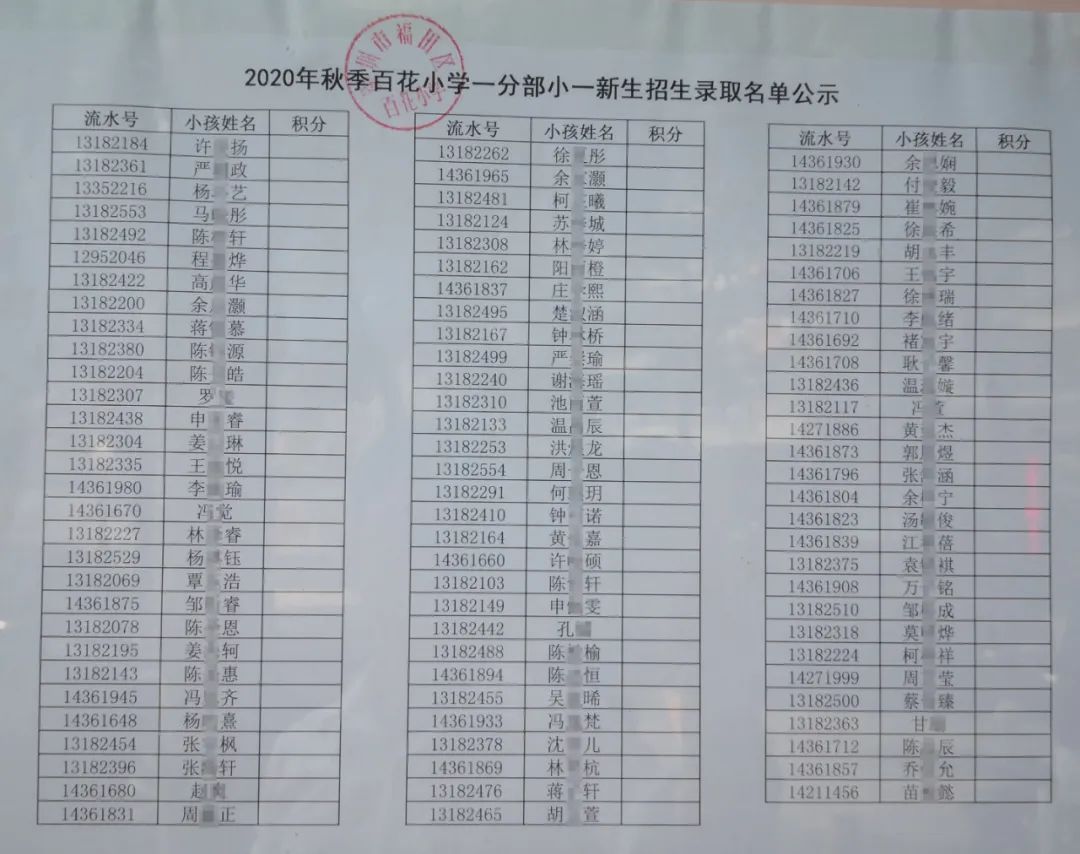 2020年秋季百花小学一分部小一新生招生录取名单公示
市福田区
百花小学
流水号 小孩姓名 积分
13182184 许 扬
13182361 严 政
13352216 杨 艺
13182553 马 彤
13182492 陈 轩
12952046 程 烨
13182422 高 华
13182200 余 灏
13182334 蒋 慕
13182380 陈 源
13182204 陈 皓
13182307 罗
13182438 申 睿
13182304 姜 琳
13182335 王 悦
14361980 李 瑜
14361670 冯 觉
13182227 林 睿
13182529 杨 钰
13182069 覃 浩
14361875 邹 睿
13182078 陈 恩
13182195 姜 轲
13182143 陈 惠
14361945 冯 齐
14361648 杨 熹
13182454 张 枫
13182396 张 轩
14361680 赵
14361831 周 正
流水号 小孩姓名 积分
13182262 徐 彤
14361965 余 灏
13182481 柯 曦
13182124 苏 城
13182308 林 婷
13182162 阳 橙
14361837 庄 熙
13182495 楚 涵
13182167 钟 桥
13182499 严 瑜
13182240 谢 瑶
13182310 池 萱
13182133 温 辰
13182253 洪 龙
13182554 周 恩
13182291 何 玥
13182410 钟 诺
13182164 黄 嘉
14361660 许 硕
13182103 陈 轩
13182149 申 雯
13182442 孔
13182488 陈 榆
14361894 陈 恒
13182455 吴 晞
14361933 冯 梵
13182378 沈 儿
14361869 林 杭
13182476 蒋 轩
13182465 胡 萱
流水号 小孩姓名 积分
14361930 余 娴
13182142 付 毅
14361879 崔 婉
14361825 徐 希
13182219 胡 丰
14361706 王 宇
14361827 徐 瑞
14361710 李 绪
14361692 褚 宇
14361708 耿 馨
13182436 温 嫙
13182117 冯 萱
14271886 黄 杰
14361873 郭 煜
14361796 张 涵
14361804 余 宁
14361823 汤 俊
14361839 江 蓓
13182375 袁 祺
14361908 万 铭
13182510 邹 成
13182318 莫 烨
13182224 柯 祥
14271999 周 莹
13182500 蔡 臻
13182363 甘
14361712 陈 辰
14361857 乔 允
14211456 苗 懿